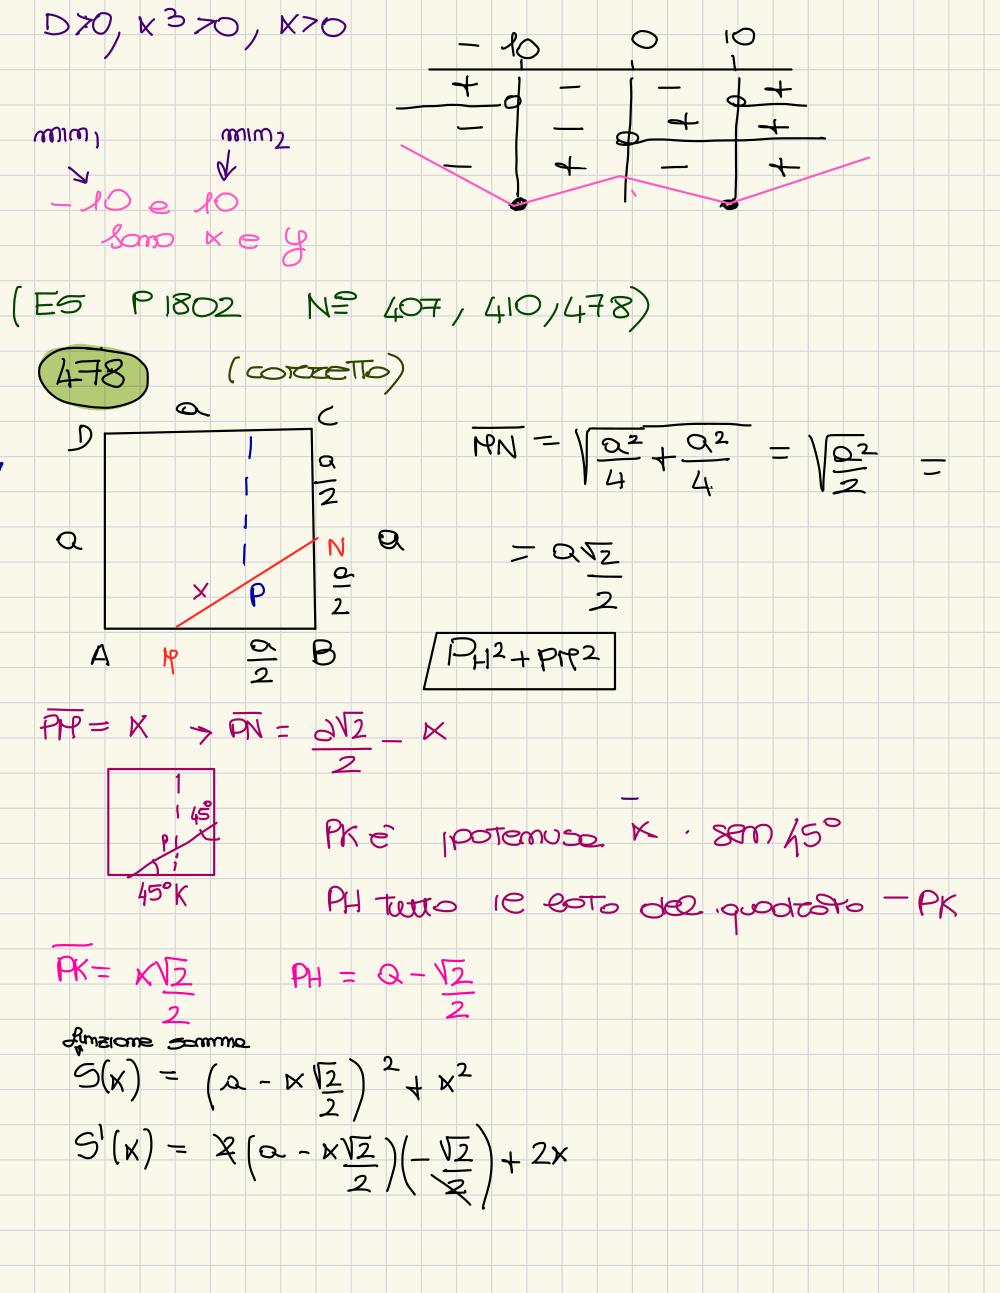 D>0, x³>0, x>0
-10 0 10
+ - - +
- - + +
- + - +
min₁ min₂
-10 e 10
sono x e y
(ES P1802 Nº 407, 410, 478)
478 (corretto)
D a C
a/2
a N a
x P a/2
A M a/2 B
MN = √(a²/4 + a²/4) = √(a²/2) =
= a√2/2
PH² + PM²
PM = x → PN = a√2/2 - x
45°
P
45° K
PK è ipotenusa x · sen 45°
PH tutto il lato del quadrato - PK
PK = x√2/2 PH = a - √2/2
funzione somma
S(x) = (a - x√2/2)² + x²
S'(x) = 2(a - x√2/2)(-√2/2) + 2x